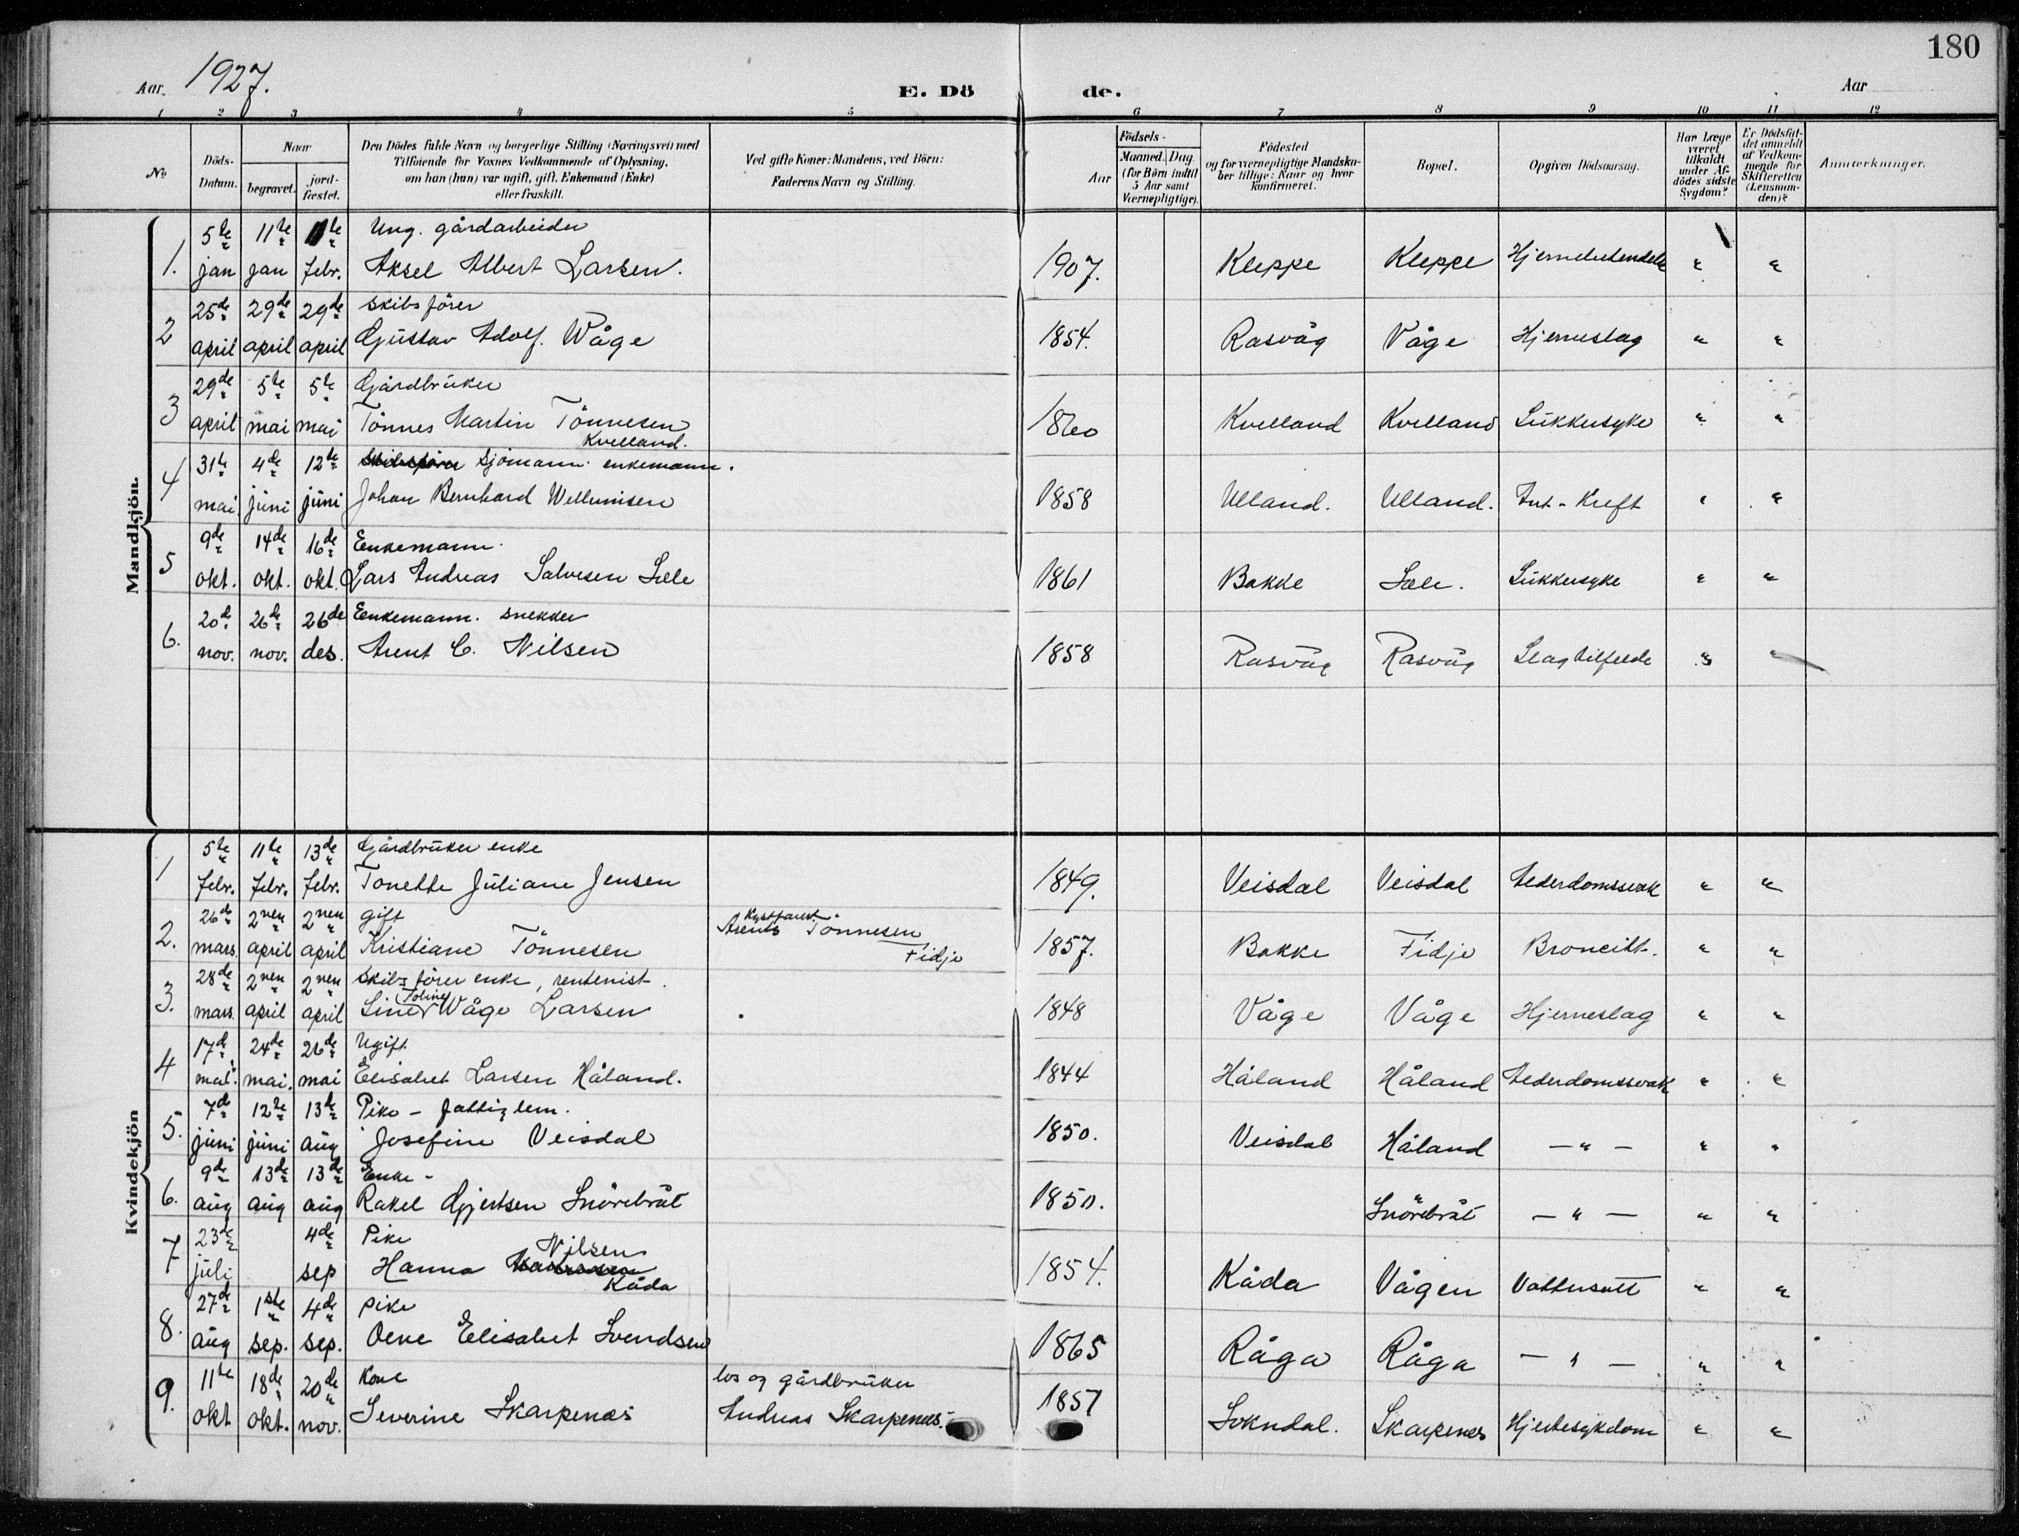 180
Aar 1927.
E. Dö de.
Aar
1 2 3 4 5 6 7 8 9 10 11 12
No
Döds-Datum.
Naar
begravet.
jord-fæstet.
Den Dödes fulde Navn og borgerlige Stilling (Næringsvei) med Tilföiende for Voxnes Vedkommende af Oplysning, om han (hun) var ugift, gift, Enkemand (Enke) eller fraskilt.
Ved gifte Koner: Mandens, ved Börn: Faderens Navn og Stilling.
Födsels-
Aar
Maaned. Dag.
(for Börn indtil 5 Aar samt Værnepligtige).
Födested og for værnepligtige Mandskaber tillige: Naar og hvor konfirmeret.
Bopæl.
Opgiven Dödsaarsag.
Har Læge været tilkaldt under Afdödes sidste Sygdom?
Er Dödsfaldet anmeldt af Vedkommende for Skifteretten (Lensmanden)?
Anmærkninger.
Mandkjön.
1. 5te jan 11te jan 11te febr. Ung. gårdarbeider Aksel Albert Larsen. 1907. Kleppe Kleppe " "
2 25de april 29de april 29de april Skibsförer Gustav Adolf. Våge 1854. Rasvåg Våge Hjerneslag " "
3 29de april 5te mai 5te mai Gårdbruker Tönnes Martin Tönnesen Kvelland. 1860 Kvelland Kvelland Sukkersyke " "
4 31te mai 4de juni 12te juni Skibsförer sjömann enkemann. Johan Bernhard Wellumsen 1858 Ulland. Ulland. Int - Kreft " "
5 9de okt. 14de okt. 16de okt. Enkemann. Lars Andreas Salvesen Sæle 1861 Bakke Sæle. Sukkersyke " "
6. 20de nov. 26de nov. 26de des. Enkemann. snekker Arent C. Nilsen 1858 Rasvåg Rasvåg Slagtilfelde " "
Kvindekjön
1 5te febr. 11te febr. 13de febr. Gårdbruker enke Tonette Juliane Jensen 1849. Veisdal Veisdal Alderdomssvak " "
2. 26de mars. 2nen april 2nen april gift Kristiane Tönnesen Arents Tönnesen Fidje 1857. Bakke Fidje Broncitt. " "
3. 28de mars. 2nen april 2nen april Skibsförer enke, rentenist. Sine Toline Våge Larsen 1848 Våge Våge Hjerneslag " "
4 17de mai. 24de mai. 26de mai Ugift Elisabet Larsen Håland. 1844 Håland Håland Alderdomssvak " "
5. 7de juni 12te juni 13de aug Pike - fattiglem. Josefine Veisdal 1850. Veisdal Håland — " — " "
6. 9de aug 13de aug 13de aug Enke - Rakel Gjertsen Snörebråt 1850. Snörebråt — " — " "
7 23de juli 4de sep Pike Hanna Nilsen Kåda 1854. Kåda Vågen Vattersott " "
8. 27de aug 1ste sep. 4de sep. pike Oene Elisabet Svendsen 1865 Råga Råga — " — " "
9. 11te okt 18de okt. 20de nov. Kone Severine Skarpenæs los og gårdbruker Andreas Skarpenæs. 1857 Sokndal. Skarpenes Hjertesykdom " "